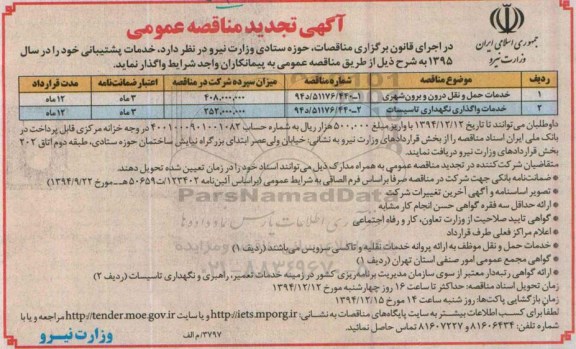 جمهوری اسلامی ایران
وزارت نیرو
آگهی تجدید مناقصه عمومی
در اجرای قانون برگزاری مناقصات، حوزه ستادی وزارت نیرو در نظر دارد، خدمات پشتیبانی خود را در سال
۱۳۹۵ به شرح ذیل از طریق مناقصه عمومی به پیمانکاران واجد شرایط واگذار نماید.
ردیف موضوع مناقصه شماره مناقصه میزان سپرده شرکت در مناقصه اعتبار ضمانت‌نامه مدت قرارداد
۱ خدمات حمل و نقل درون و برون‌شهری ۹۴د/۵۱۱۷۶/۴۴۰-۱ ۴۰۸,۰۰۰,۰۰۰ ۳ماه ۱۲ماه
۲ خدمات واگذاری نگهداری تاسیسات ۹۴د/۵۱۱۷۶/۴۴۰-۲ ۲۵۲,۰۰۰,۰۰۰ ۳ماه ۱۲ماه
داوطلبان می‌توانند تا تاریخ ۱۳۹۴/۱۲/۱۲ با واریز مبلغ ۵۰۰,۰۰۰ هزار ریال به شماره حساب ۴۰۰۱۰۰۰۹۰۱۰۰۱۰۸۲ در وجه خزانه مرکزی قابل پرداخت در
بانک ملی ایران اسناد مناقصه را از بخش قراردادهای وزارت نیرو به نشانی: خیابان ولی‌عصر ابتدای بزرگراه نیایش ساختمان حوزه ستادی، طبقه دوم اتاق ۲۰۲
بخش قراردادهای وزارت نیرو دریافت نمایند.
متقاضیان شرکت‌کننده در تجدید مناقصه عمومی به همراه مدارک ذیل می‌توانند اسناد خود را در زمان تعیین شده تحویل دهند.
* ضمانت‌نامه بانکی جهت شرکت در مناقصه صرفا براساس فرم الصاقی به شرایط عمومی (براساس آئین‌نامه ۱۲۳۴۰۲/ت۵۰۶۵۹هـ مورخ ۱۳۹۴/۹/۲۲)
* تصویر اساسنامه و آگهی آخرین تغییرات شرکت
* ارائه حداقل سه فقره گواهی حسن انجام کار مشابه
* گواهی تایید صلاحیت از وزارت تعاون، کار و رفاه اجتماعی
* اعلام مراکز فعلی طرف قرارداد
* خدمات حمل و نقل موظف به ارائه پروانه خدمات نقلیه و تاکسی سرویس می‌باشند (ردیف ۱)
* گواهی مجمع عمومی امور صنفی استان تهران (ردیف ۱)
* ارائه گواهی رتبه‌دار معتبر از سوی سازمان مدیریت برنامه‌ریزی کشور در زمینه خدمات تعمیر، راهبری و نگهداری تاسیسات (ردیف ۲)
زمان تحویل اسناد مناقصه: حداکثر تا ساعت ۱۶ روز چهارشنبه مورخ ۱۳۹۴/۱۲/۱۲
زمان بازگشایی پاکت‌ها: روز شنبه ساعت ۱۴ مورخ ۱۳۹۴/۱۲/۱۵
لطفا برای کسب اطلاعات بیشتر به سایت پایگاه‌های مناقصات به نشانی: http://iets.mporg.ir و یا سایت http://tender.moe.gov.ir مراجعه و یا با
شماره تلفن ۸۱۶۰۶۴۳۴ و ۸۱۶۰۷۲۲۷ تماس حاصل نمائید.
۳۷۹۷/م الف
وزارت نیرو
ParsNamadData